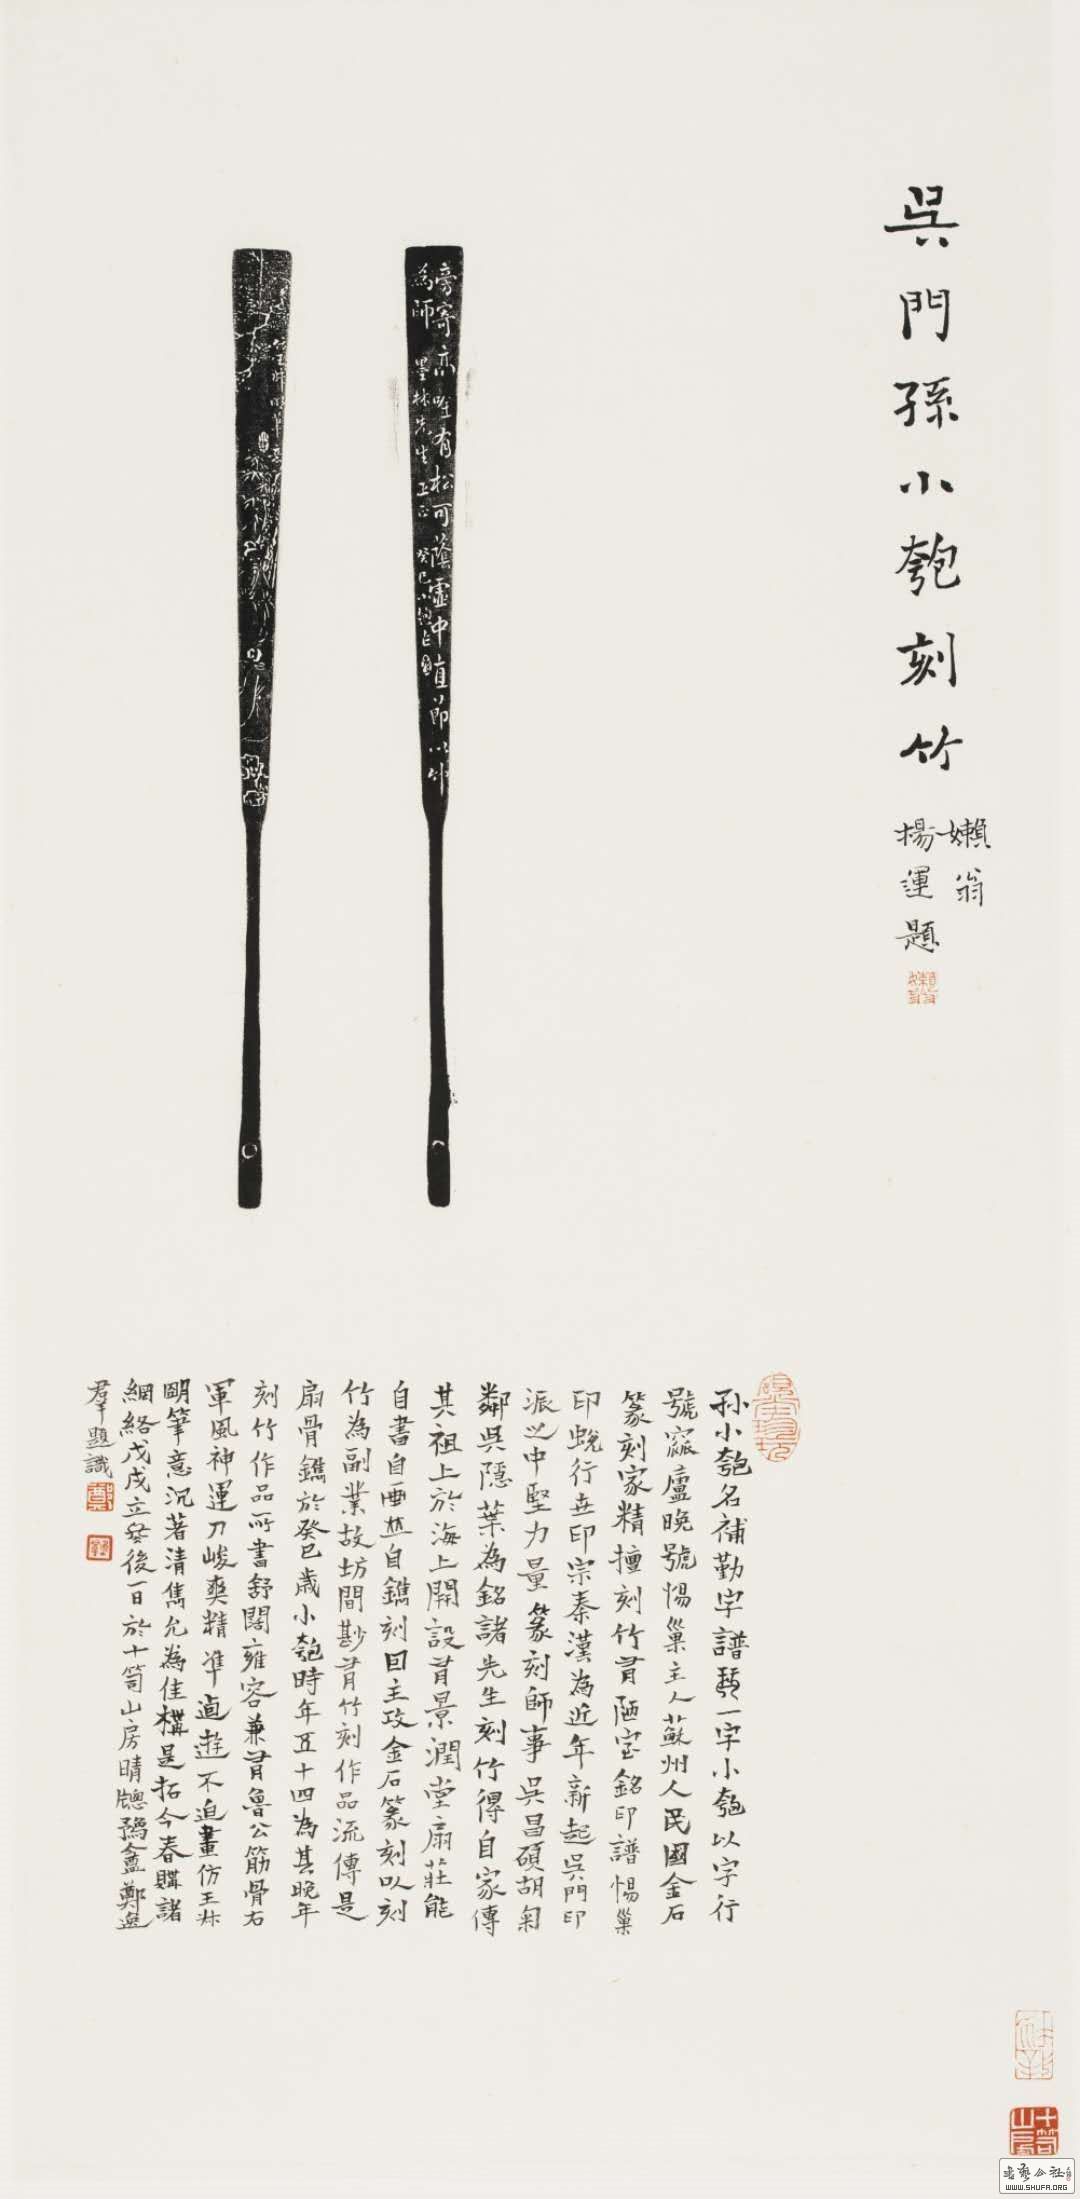 吳門孫小匏刻竹
嬾翁
楊運題
旁寄高唯有松可蔭虛中直節以竹
為師 墨林先生正 癸巳小匏
孙小匏名補勤字譜琴一字小匏以字行
號寙廬晚號惕巢主人蘇州人民國金石
篆刻家精擅刻竹有陋室銘印譜惕巢
印蛻行世印宗秦漢為近年新起吳門印
派之中堅力量篆刻師事吳昌碩胡匊
鄰吳隱葉為銘諸先生刻竹得自家傳
其祖上於海上開設有景潤堂扇莊能
自書自画並自鐫刻因主政金石篆刻以刻
竹為副業故坊間尟有竹刻作品流傳是
扇骨鐫於癸巳歲小匏時年五十四為其晚年
刻竹作品所書舒闊雍容兼有魯公筋骨右
軍風神運刀峻爽精準遒遊不迫畫仿王叔
明筆意沉著清雋允為佳構是拓今春購諸
網絡戊戌立冬後一日於十笏山房晴牕鄭逸
羣題識
WWW.SHUFA.ORG